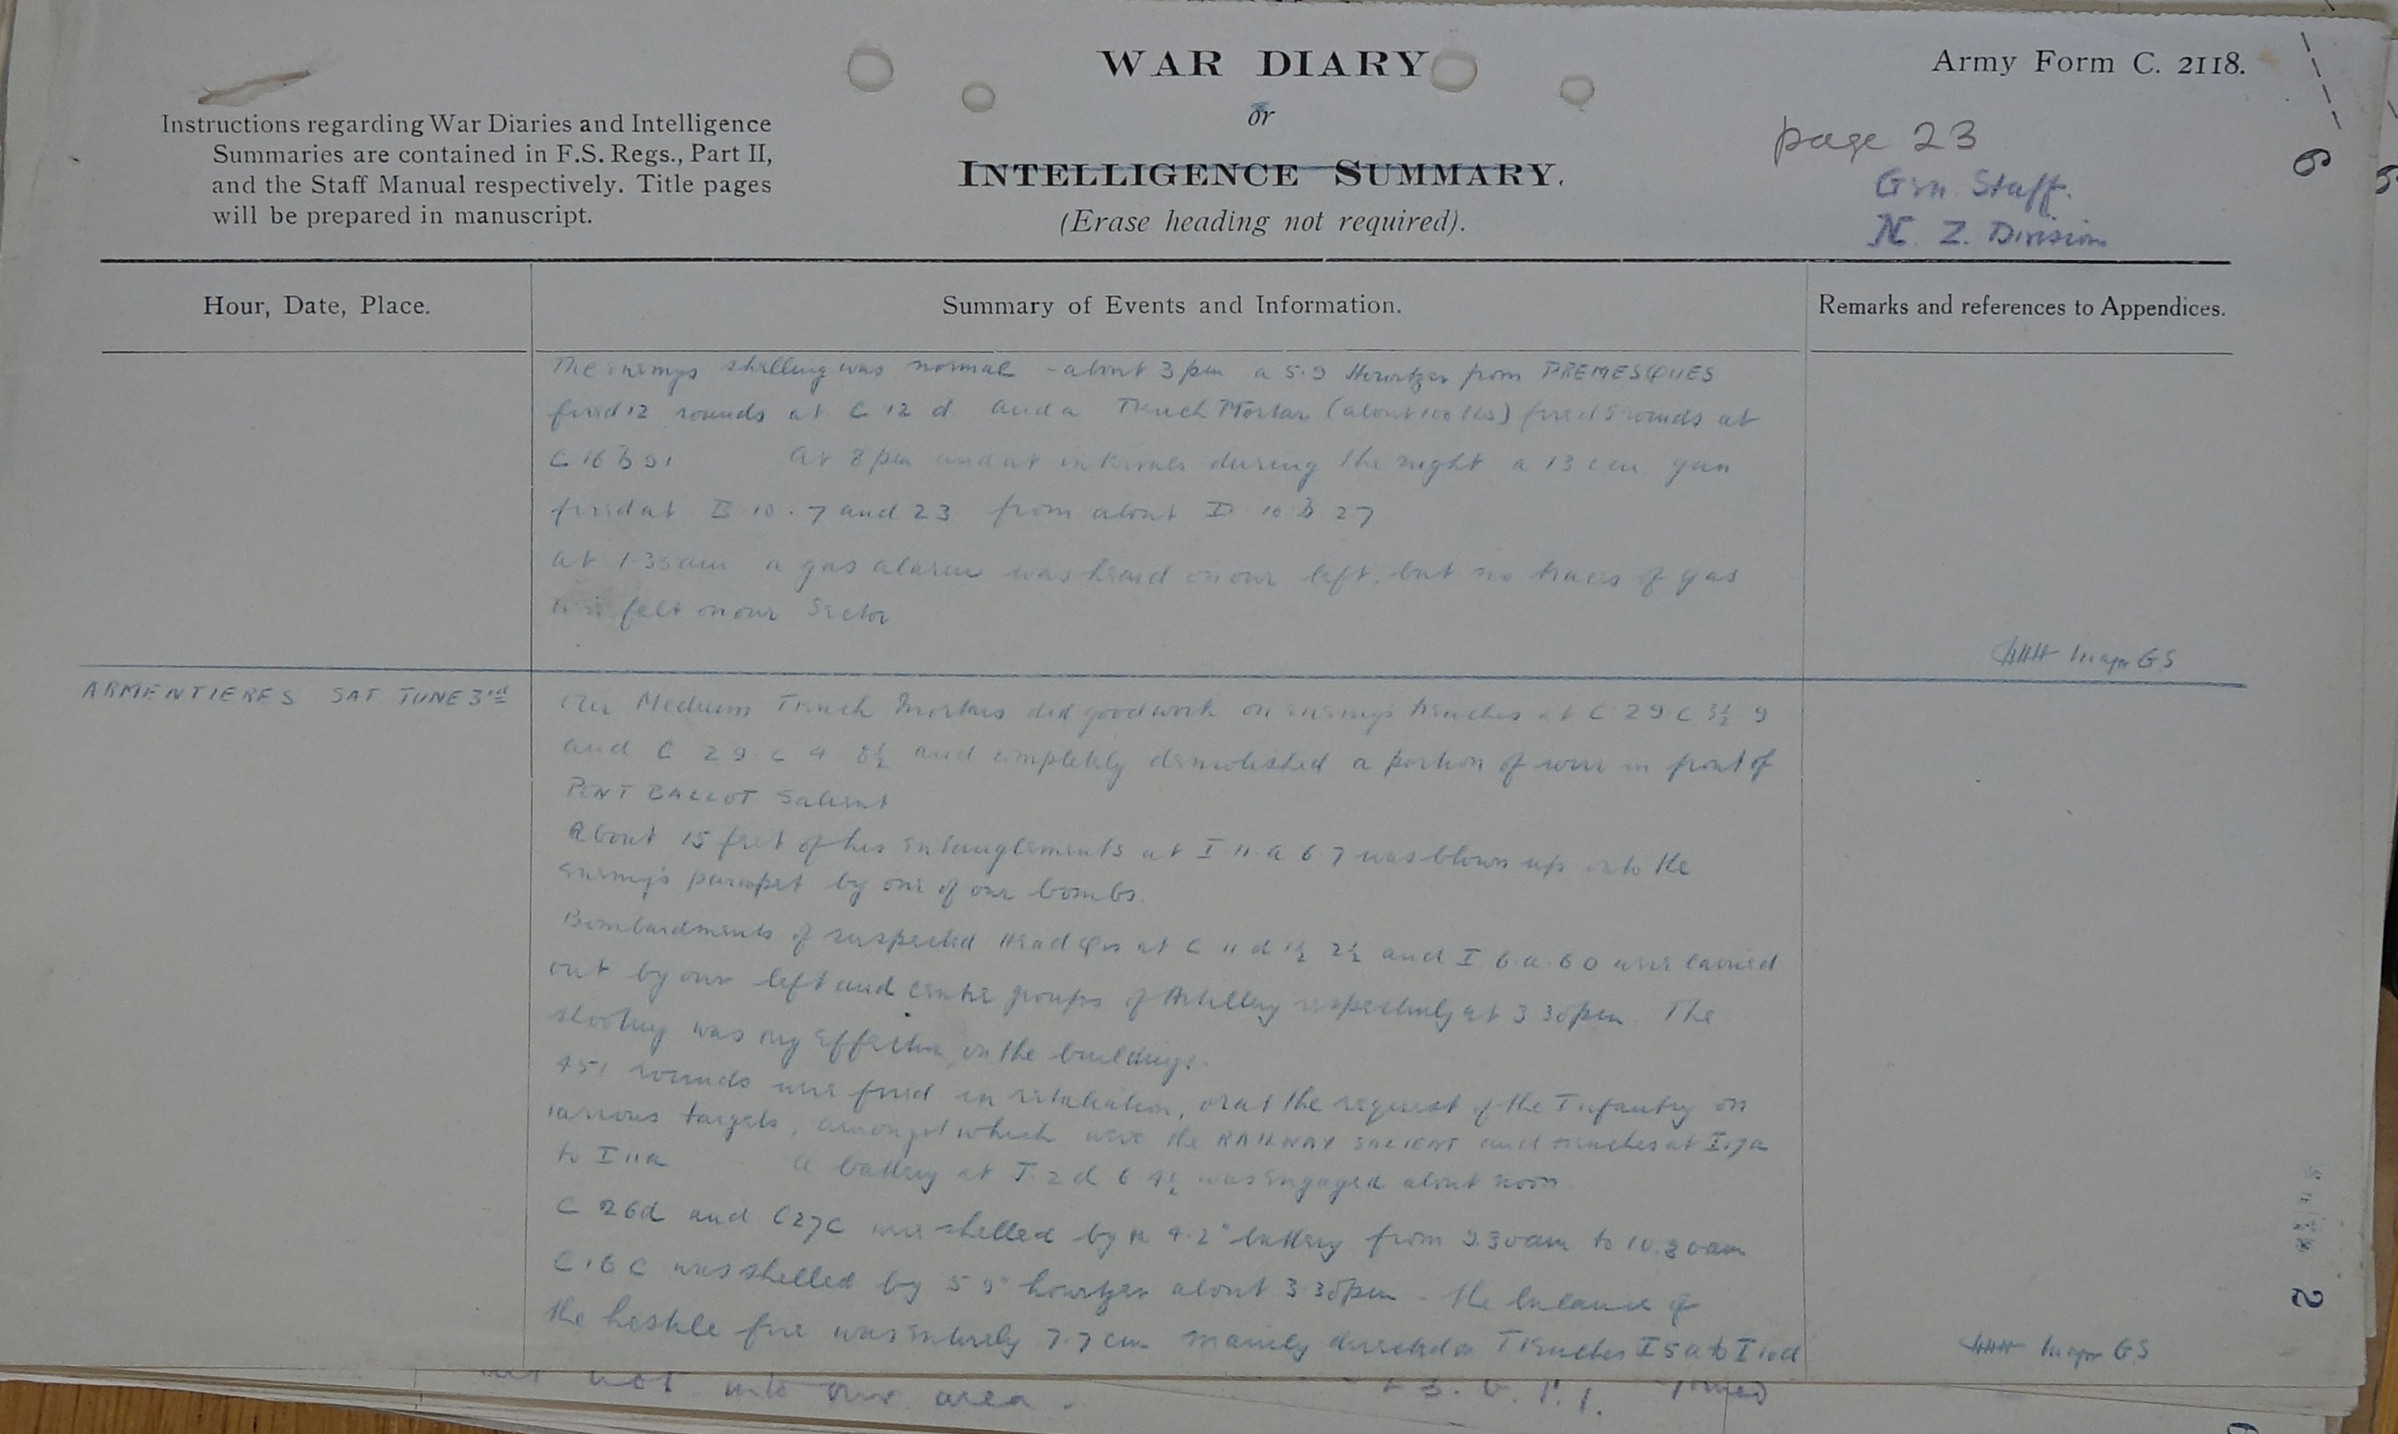 WAR DIARY
or
INTELLIGENCE SUMMARY.
(Erase heading not required).
Army Form C. 2118.
Instructions regarding War Diaries and Intelligence
Summaries are contained in F.S. Regs., Part II,
and the Staff Manual respectively. Title pages
will be prepared in manuscript.
page 23
Gen. Staff.
N. Z. Division
6
Hour, Date, Place.
Summary of Events and Information.
Remarks and references to Appendices.
The enemys shelling was normal - about 3 pm a 5.9 Howitzer from PREMESQUES
fired 12 rounds at C 12 d and a Trench Mortar (about 100 lbs) fired 5 rounds at
C 16 b 91 At 8 pm and at intervals during the night a 13 cm gun
fired at B 10 . 7 and 23 from about D 10 b 27
at 1.35 am a gas alarm was heard on our left, but no traces of gas
was felt on our Sector
Major GS
ARMENTIERES SAT JUNE 3rd
Our Medium Trench Mortars did good work on enemy's trenches at C 29 . C 3½ 9
and C 29 . C 4 8½ and completely demolished a portion of wire in front of
PONT BALLOT Salient
About 15 feet of his entanglements at I 11 . a 6.7 was blown up onto the
enemy's parapet by one of our bombs.
Bombardments of suspected Head Qrs at C 11 d 1½ 2½ and I 6.a.60 were carried
out by our left and centre groups of Artillery respectively at 3 30 pm. The
shooting was very effective on the buildings.
451 rounds were fired in retaliation, or at the request of the Infantry on
various targets, amongst which were the RAILWAY SALIENT and trenches at I.17a
to I 11a A battery at J. 2 d 6 4½ was engaged about noon
C 26d and C27C were shelled by a 4.2" battery from 9.30am to 10.30am
C.16 C was shelled by 5 9" howitzer about 3.30pm - the balance of
the hostile fire was entirely 7.7 cm mainly directed on Trenches I 5 a to I 10d
Major GS
2
not into our area .